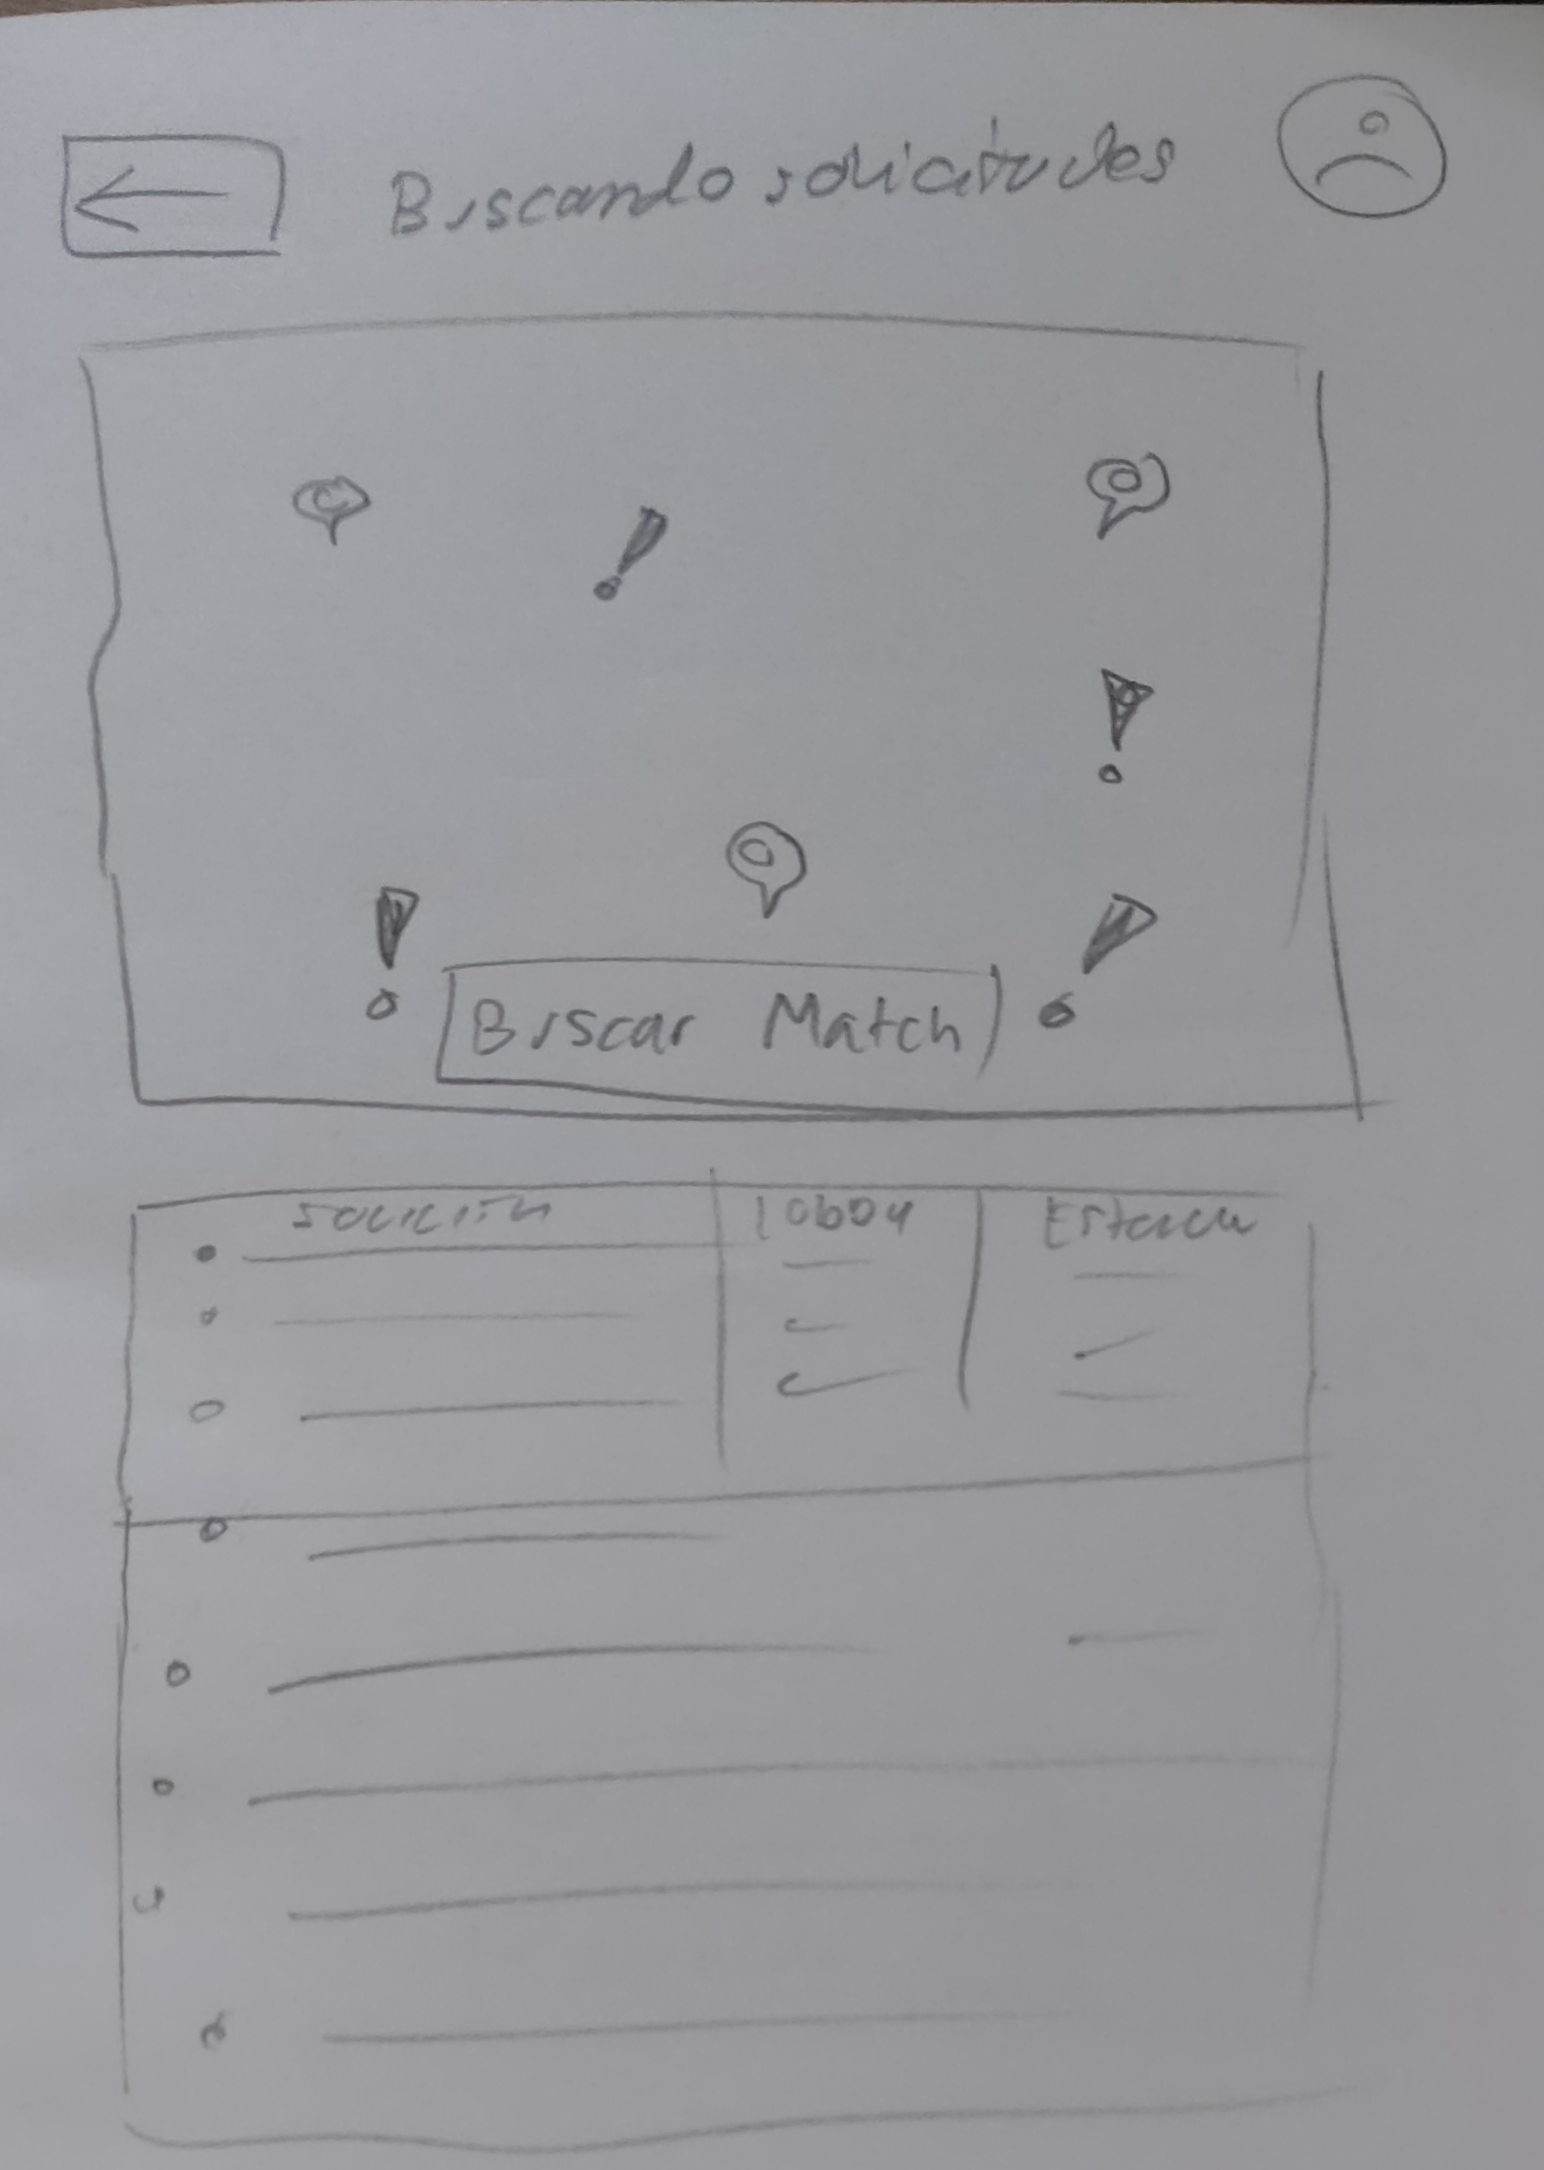 Buscando solicitudes
Buscar Match
lobby Estado